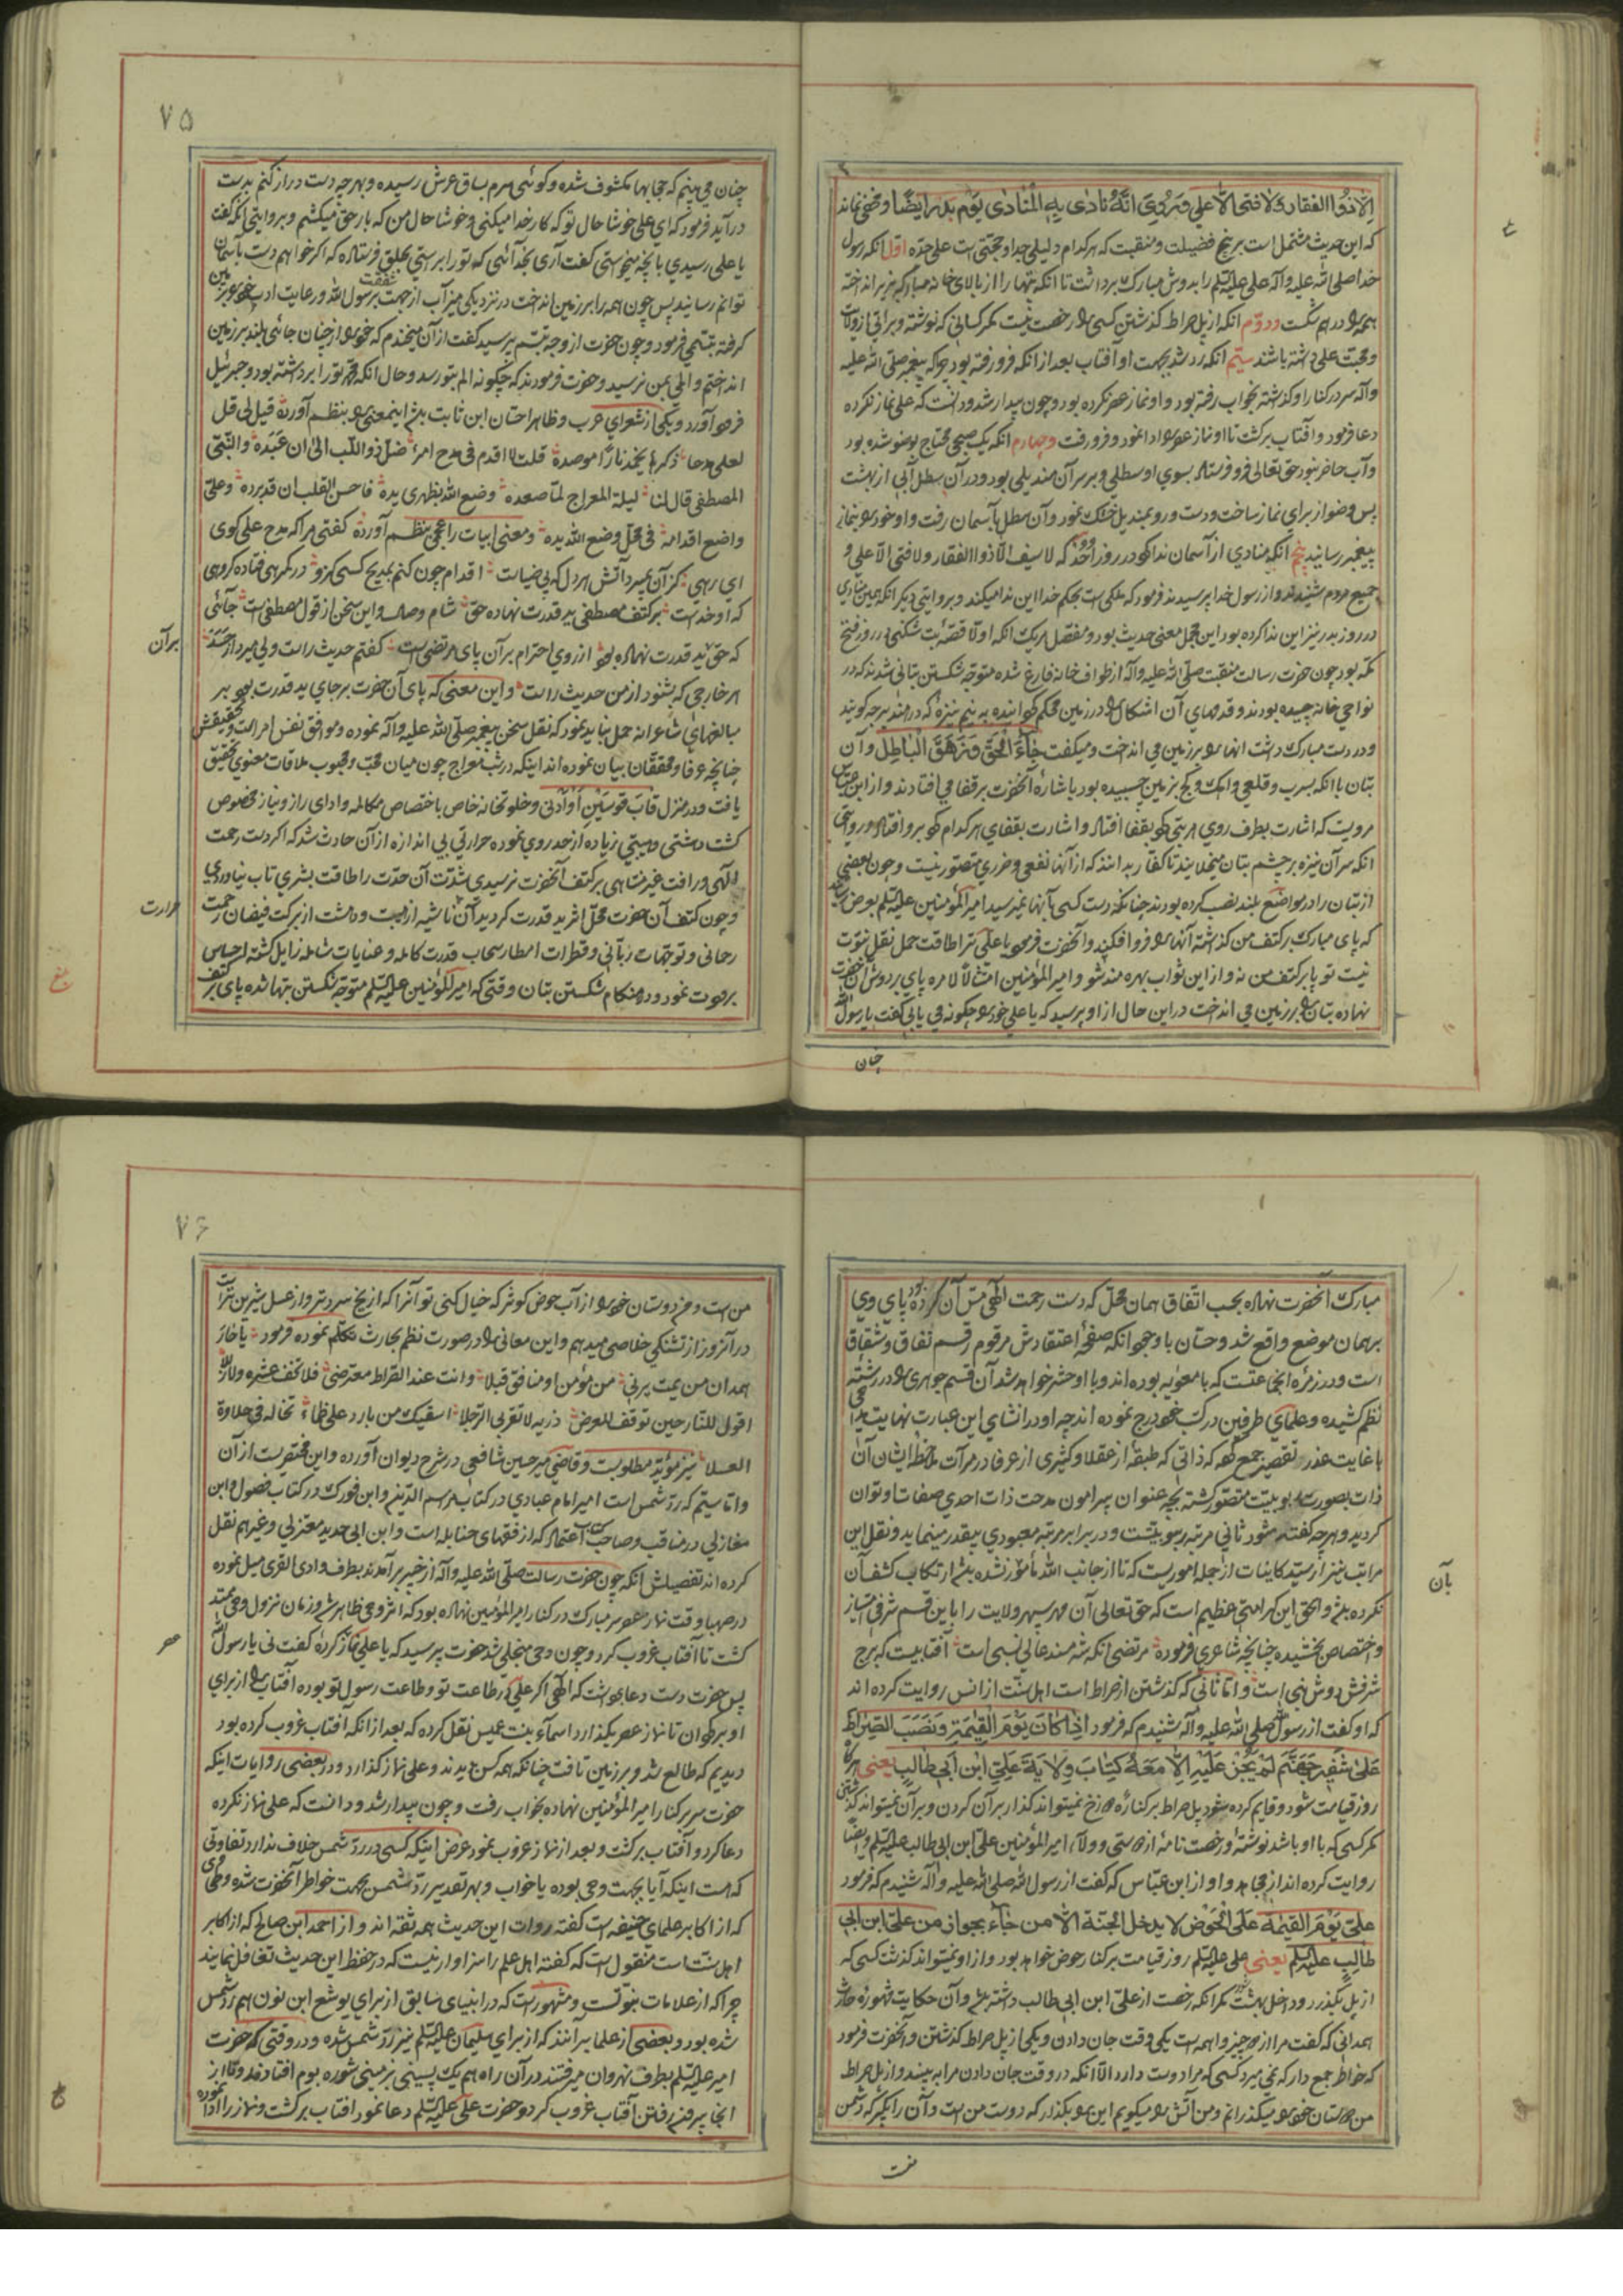 الا ذو الفقار ولا فتی الا علی و روی انه نادی به المنادی یوم بدر ایضا و مخفی نماند
که این حدیث مشتمل است بر پنج فضیلت و منقبت که هر کدام دلیلی جدا و حجتی است علی حده اول انکه رسول
خدا صلی الله علیه و آله علی علیه السلم را بدوش مبارک برداشت تا انکه بتها را از بالای خانه مبارکه بزیر انداخته
همه را در هم شکست و دوم انکه از پل صراط گذشتن کسی را رخصت نیست مگر کسانی که نوشته و براتی از ولایت
و محبت علی داشته باشد سیم انکه رد شد بجهت او آفتاب بعد از انکه فرو رفته بود چرا که پیغمبر صلی الله علیه
و آله سر در کنار او گذاشته بخواب رفته بود و او نماز عصر نکرده بود و چون بیدار شد و دانست که علی نماز نکرده
دعا فرمود و آفتاب برگشت تا او نماز عصر را ادا نمود و فرو رفت و چهارم انکه یک صبحی محتاج بوضو شده بود
و آب حاضر نبود حق تعالی فرو فرستاد بسوی او سطلی و بر سر آن مندیلی بود و در آن سطل آبی از بهشت
پس وضو از برای نماز ساخت و دست و رو بمندیل خشک نمود و آن سطل بآسمان رفت و او خود را بنماز
پیغمبر رسانید پنجم انکه منادی از آسمان ندا کرد در روز احد که لا سیف الا ذو الفقار ولا فتی الا علی و
جمیع مردم شنیدند و از رسول خدا پرسیدند فرمود که ملکی است بحکم خدا این ندا میکند و بروایتی دیگر انکه همین منادی
در روز بدر نیز این ندا کرده بود این مجمل معنی حدیث بود و مفصل هر یک انکه اولا قصه بت شکنی در روز فتح
مکه بود چون حضرت رسالت منقبت صلی الله علیه و آله از طواف خانه فارغ شده متوجه شکستن بتانی شدند که در
نواحی خانه چیده بودند و قدمهای آن اشکال را در زمین محکم گردانیده به نیم نیزه که در هند برچه گویند
و در دست مبارک داشت انها را بر زمین می انداخت و میگفت جاء الحق و زهق الباطل و آن
بتان با انکه بسرب و قلعی و اهک و گچ بزمین چسبیده بود باشاره آنحضرت بر قفا می افتادند و از ابن عباس
مرویست که اشارت بطرف روی هر بتی که بقفا افتاد و اشارت بقفای هر کدام که برو افتاد و روایتی
انکه سر آن نیزه بر چشم بتان میخلانید تا کفار بدانند که از آنها نفعی و ضرری متصور نیست و چون بعضی
از بتان را در مواضع بلند نصب کرده بودند چنانکه دست کسی بآنها نمیرسید امیر المؤمنین علیه السلم بعرض رسانید
که پای مبارک بر کتف من گذاشته آنها را فرو افکنید و آنحضرت فرمود یا علی ترا طاقت حمل نقل نبوت
نیست تو پا بر کتف من نه و از این ثواب بهره مند شو و امیر المؤمنین امتثالا لامره پای بر دوش آن حضرت
نهاده بتان را بر زمین می انداخت در این حال از او پرسید که یا علی خود را چگونه می یابی گفت یا رسول الله
چنان
۷۵
چنان می بینم که حجابها مکشوف شده و گوئی سرم بساق عرش رسیده و بهر چه دست دراز کنم بدست
در آید فرمود که ای علی خوشا حال تو که کار خدا میکنی و خوشا حال من که بار حق میکشم و بروایتی انکه گفت
یا علی رسیدی بآنچه میخواستی گفت آری بخدائی که تو را براستی بخلق فرستاده که اگر خواهم دست بآسمان
توانم رسانید پس چون همه را بر زمین انداخت در نزدیکی میزاب از جهت شفقت برسول الله و رعایت ادب خود بر زمین
گرفته تبسمی فرمود و چون حضرت از وجه تبسم پرسید گفت از آن میخندم که خود را از چنان جائی بلند بر زمین
انداختم و المی بمن نرسید و حضرت فرمودند که چگونه الم بتو رسد و حال انکه محمد تو را برداشته بود و جبرئیل
فرود آورد و یکی از شعرای عرب و ظاهرا حسان ابن ثابت باشد اینمعنی را بنظم آورده قیل لی قل
لعلی مدحا ذکره یخمد نارا موصده قلت لا اقدم فی مدح امرء ضل ذو اللب الی ان عبده و النبی
المصطفی قال لنا لیلة المعراج لما صعده وضع الله بظهری یده فاحس القلب ان قد برده و علی
واضع اقدامه فی محل وضع الله یده و معنی ابیات را عجمی بنظم آورده گفتی مرا که مدح علی گوی
ای رهی کز آن بمیرد آتش هر دل که پر ضیاست اقدام چون کنم بمدیح کسی کزو در گمرهی فتاده گروهی
که او خداست بر کتف مصطفی ید قدرت نهاده حق شام وصال و این سخن از قول مصطفی است جائی
که حق ید قدرت نهاده بود از روی احترام بر آن پای مرتضی است گفتم حدیث راست ولی میرد از حسد
هر خارجی که بشنود از من حدیث راست و این معنی که پای آن حضرت بر جای ید قدرت بود بر
مبالغهای شاعرانه حمل نباید نمود که نقل سخن پیغمبر صلی الله علیه و آله نموده و موافق نفس امر است و تحقیقش
چنانچه عرفا و محققان بیان نموده اند اینکه در شب معراج چون میان محب و محبوب ملاقات معنوی تحقیق
یافت و در منزل قاب قوسین او ادنی و خلوتخانه خاص باختصاص مکالمه و ادای راز و نیاز مخصوص
گشت دهشتی و هیبتی زیاده از حد روی نموده حرارتی بی اندازه از آن حادث شد که اگر دست رحمت
الهی و رافت غیر متناهی بر کتف آنحضرت نرسیدی شدت آن حدت را طاقت بشری تاب نیاوردی
و چون کتف آن حضرت محل اثر ید قدرت گردید آن ناشیه از هیبت و دهشت از برکت فیضان رحمت
رحمانی و توجهات ربانی و قطرات امطار سحاب قدرت کامله و عنایات شامله زایل گشته احساس
برودت نمود و در هنگام شکستن بتان وقتی که امیر المؤمنین علیه السلم متوجه شکستن بتها شده پای بر کتف
بر آن
حرارت
مبارک آنحضرت نهاده بحسب اتفاق همان محل که دست رحمت الهی مس آن کرده بود پای وی
بر همان موضع واقع شد و حسان با وجود انکه صفحه اعتقادش مرقوم رقم نفاق و شقاق
است و در زمره انجماعتست که با معویه بوده اند و با او حشر خواهد شد آن قسم جوهری را در رشته
نظم کشیده و علمای طرفین در کتب خود درج نموده اند چه او در انشای این عبارت نهایت مدح
با غایت عذر تقصیر جمع کرده که ذاتی که طبقه از عقلا و کثیری از عرفا در مرآت ملاحظه ایشان آن
ذات بصورت ربوبیت متصور گشته بچه عنوان پیرامون مدحت ذات احدی صفات او توان
گردید و هر چه گفته شود ثانی مرتبه ربوبیتست و در برابر مرتبه معبودی بیقدر مینماید و نقل این
مراتب نیز از سید کاینات از جمله اموریست که تا از جانب الله مأمور نشده باشد ارتکاب کشف آن
نکرده باشد و الحق این کرامتی عظیم است که حق تعالی آن مهر سپهر ولایت را باین قسم شرفی امتیاز
و اختصاص بخشیده چنانچه شاعری فرموده مرتضی انکه شه مسند عالی نسبی است آفتابیست که برج
شرفش دوش نبی است و اما ثانی که گذشتن از صراط است اهل سنت از انس روایت کرده اند
که او گفت از رسول الله صلی الله علیه و آله شنیدم که فرمود اذا کان یوم القیمة و نصب الصراط
علی شفیر جهنم لم یجز علیه الا من معه کتاب ولایة علی ابن ابی طالب یعنی هر گاه
روز قیامت شود و قایم کرده شود پل صراط بر کناره دوزخ نمیتواند گذار بر آن کردن و بر آن نمیتواند گذشتن
مگر کسی که با او باشد نوشته و رخصت نامه از دوستی و ولاء امیر المؤمنین علی ابن ابی طالب علیه السلم و ایضا
روایت کرده اند از مجاهد و او از ابن عباس که گفت از رسول الله صلی الله علیه و آله شنیدم که فرمود
علی یوم القیمة علی الحوض لا یدخل الجنة الا من جاء بجواز من علی ابن ابی
طالب علیه السلم یعنی علی علیه السلم روز قیامت بر کنار حوض خواهد بود و از او نمیتواند گذشت کسی که
از پل بگذرد و داخل بهشت شود مگر انکه رخصت از علی ابن ابی طالب داشته باشد و آن حکایت مشهوره حارث
همدانی که گفت مرا از دو چیز واهمه است یکی وقت جان دادن و یکی از پل صراط گذشتن و آنحضرت فرمود
که خواطر جمع دار که نمی میرد کسی که مرا دوست دارد الا انکه در وقت جان دادن مرا به بیند و از پل صراط
من دوستان خود را میگذرانم و من آتش را میگویم این را بگذار که دوست من است و آن را بگیر که دشمن
بآن
منست
۷۶
من است و من دوستان خود را از آب حوض کوثر که خیال کنی تو آنرا که از یخ سرد تر و از عسل شیرین تر است
در آنروز از تشنگی خلاصی میدهم و این معانی را در صورت نظم بحارث تکلم نموده فرمود یا حار
همدان من یمت یرنی من مؤمن او منافق قبلا و انت عند الصراط معترضی فلا تخف عثرة ولا زللا
اقول للنار حین توقف للعرض ذریه لا تقربی الرجلا اسقیک من بارد علی ظماء تخاله فی حلاوة
العسلا نیز مؤید مطلوبست و قاضی میر حسین شافعی در شرح دیوان آورده و این مختصریست از آن
و اما سیم که رد شمس است امیر امام عبادی در کتاب مراسم الدین و ابن فورک در کتاب فصول و ابن
مغازلی در مناقب و صاحب کتاب اعتماد که از فقهای حنابله است و ابن ابی حدید معتزلی و غیر هم نقل
کرده اند تفصیلش انکه چون حضرت رسالت صلی الله علیه و آله از خیبر بر آمدند بطرف وادی القری میل نموده
در صهبا وقت نماز عصر سر مبارک در کنار امیر المؤمنین نهاده بود که اثر وحی ظاهر شد و زمان نزول وحی ممتد
گشت تا آفتاب غروب کرد و چون وحی منجلی شد حضرت پرسید که یا علی نماز کرده گفت نی یا رسول الله
پس حضرت دست دعا برداشت که الهی اگر علی در طاعت تو و طاعت رسول تو بوده آفتاب را از برای
او برگردان تا نماز عصر بگذارد اسماء بنت عمیس نقل کرده که بعد از انکه آفتاب غروب کرده بود
دیدیم که طالع شد و بر زمین تافت چنانکه همه کس دیدند و علی نماز گذارد و در بعضی روایات اینکه
حضرت سر بر کنار امیر المؤمنین نهاده بخواب رفت و چون بیدار شد و دانست که علی نماز نکرده
دعا کرد و آفتاب برگشت و بعد از نماز غروب نمود غرض اینکه کسی در رد شمس خلاف ندارد تفاوتی
که هست اینکه آیا بجهت وحی بوده یا خواب و بهر تقدیر رد الشمس بجهت خواطر آنحضرت شده و طحاوی
که از اکابر علمای حنیفه است گفته روات این حدیث همه ثقه اند و از احمد ابن صالح که از اکابر
اهل سنت است منقول است که گفته اهل علم را سزاوار نیست که در حفظ این حدیث تغافل نمایند
چرا که از علامات نبوتست و مشهور است که در انبیای سابق از برای یوشع ابن نون هم رد شمس
شده بود و بعضی از علما برآنند که از برای سلیمان علیه السلم نیز رد شمس شده و در وقتی که حضرت
امیر علیه السلم بطرف نهروان میرفتند در آن راه هم یک پسینی بزمینی شوره بوم افتادند و تا از
انجا بیرون رفتن آفتاب غروب کرد و حضرت علی علیه السلم دعا نمود افتاب برگشت و نماز را ادا نموده
عصر